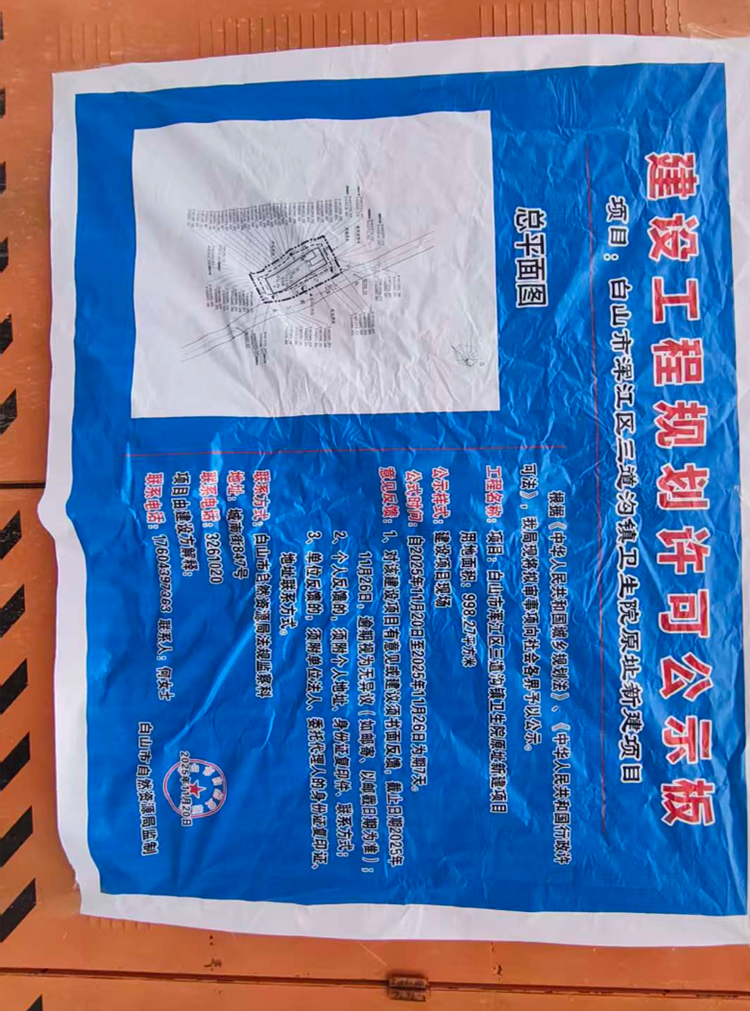 建设工程规划许可公示板
项目：白山市浑江区三道沟镇卫生院原址新建项目
总平面图
根据《中华人民共和国城乡规划法》、《中华人民共和国行政许
可法》，我局现将拟审事项向社会各界予以公示。
工程名称：项目：白山市浑江区三道沟镇卫生院原址新建项目
用地面积：998.27平方米
公示样式：建设项目现场
公式时间：自2025年11月20日至2025年11月26日为期7天。
意见反馈：1、对该建设项目有意见或建议须书面反馈，截止日期2025年
11月26日，逾期视为无异议（如邮寄，以邮戳日期为准）；
2、个人反馈的，须附个人地址、身份证复印件、联系方式；
3、单位反馈的，须附单位法人、委托代理人的身份证复印证、
地址联系方式。
联系方式：白山市自然资源局法规监察科
地址：城南街847号
联系电话：3261020
项目由建设方解释：
联系电话： 联系人：何女士
2025年11月20日
白山市自然资源局监制